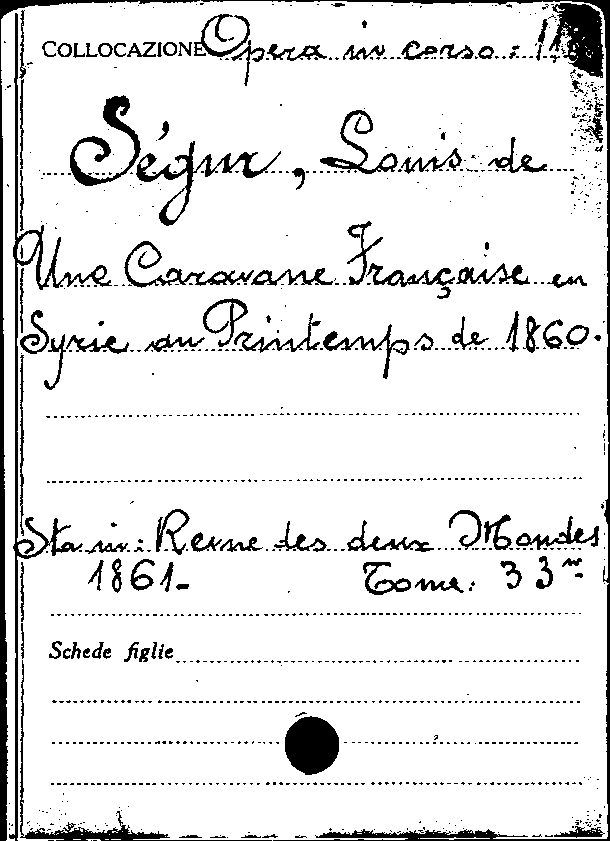 COLLOCAZIONE Opera in corso:
Ségur, Louis de
Une Caravane Française en
Syrie au Printemps de 1860.
Sta in: Revue des deux Mondes
1861- Tome: 33me
Schede figlie